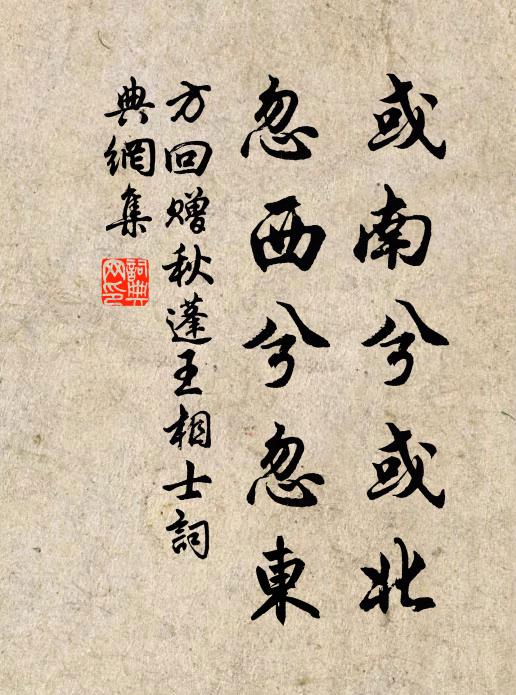 或南兮或北
忽西兮忽東
方回赠秋蓬王相士詞
典網集
詞典
网印